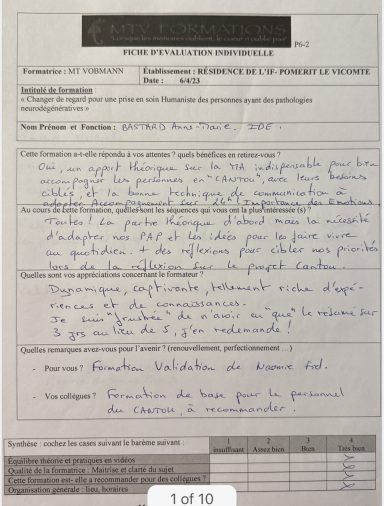 MTV FORMATIONS
"Lorsque les mémoires oublient, le coeur n'oublie pas"
P6-2
FICHE D'EVALUATION INDIVIDUELLE
Formatrice : MT VOBMANN
Établissement : RÉSIDENCE DE L'IF- POMERIT LE VICOMTE
Date : 6/4/23
Intitulé de formation :
« Changer de regard pour une prise en soin Humaniste des personnes ayant des pathologies
neurodégénératives »
Nom Prénom et Fonction : BASTARD Anne-Marie. IDE.
Cette formation a-t-elle répondu à vos attentes ? quels bénéfices en retirez-vous ?
Oui, un apport théorique sur la MA indispensable pour bien
accompagner les personnes en "CANTOU", avec leurs besoins
ciblés, et la bonne technique de communication à
adopter. Accompagnement sur 24h ! Importance des Emotions.
Au cours de cette formation, quelles sont les séquences qui vous ont la plus intéressée (s) ?
Toutes ! La partie théorique d'abord mais la nécessité
d'adapter nos PAP et les idées pour les faire vivre
au quotidien. + des réflexions pour cibler nos priorités
lors de la réflexion sur le projet Cantou.
Quelles sont vos appréciations concernant le formateur ?
Dynamique, captivante, tellement riche d'expé-
riences et de connaissances.
Je suis "frustrée" de n'avoir eu "que" le résumé sur
3 jrs au lieu de 5, j'en redemande !
Quelles remarques avez-vous pour l'avenir ? (renouvellement, perfectionnement ...)
- Pour vous ? Formation Validation de Naomie Feil.
- Vos collègues ? Formation de base pour le personnel
du CANTOU, à recommander.
Synthèse : cochez les cases suivant le barème suivant :
1 insuffisant
2 Assez bien
3 Bien
4 Très bien
Equilibre théorie et pratiques en vidéos
Qualité de la formatrice : Maitrise et clarté du sujet
Cette formation est- elle a recommander pour des collègues ?
Organisation générale : lieu, horaires
1 of 10